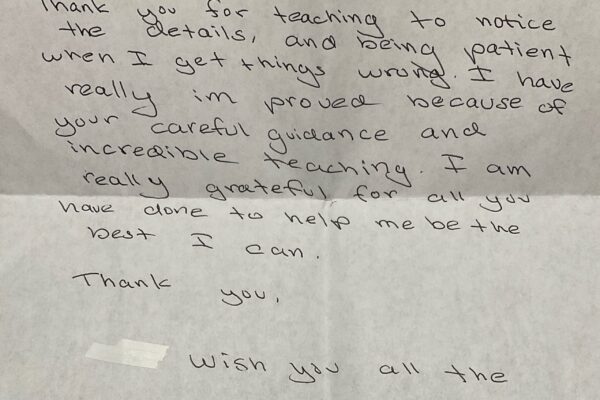 Thank you for teaching to notice
the details, and being patient
when I get things wrong. I have
really im proved because of
your careful guidance and
incredible teaching. I am
really grateful for all you
have done to help me be the
best I can.
Thank you,
Wish you all the